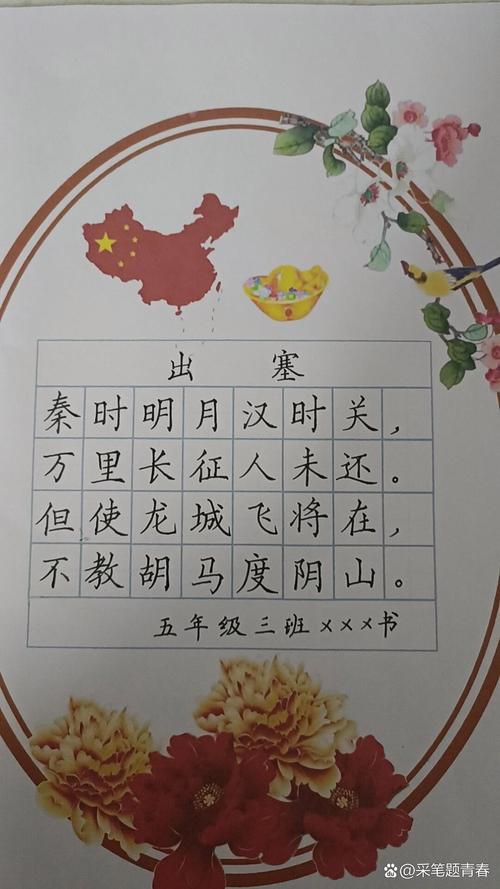 出 塞
秦时明月汉时关，
万里长征人未还。
但使龙城飞将在，
不教胡马度阴山。
五年级三班×××书
@采笔题青春